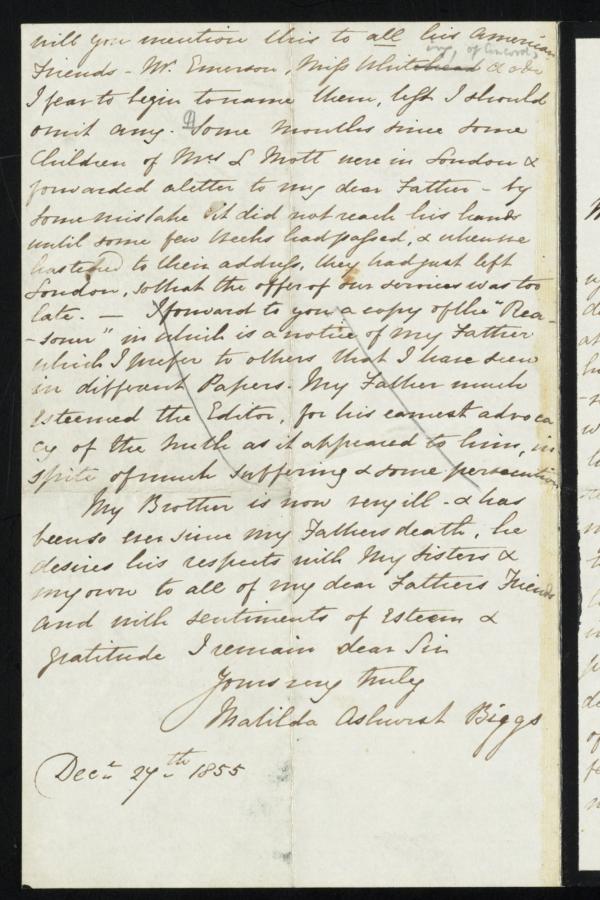 will you mention this to all his American
ing, of Concord,
Friends - Mr. Emerson, Miss Whitehead & others
I fear to begin to name them, lest I should
omit any. Some months since some
Children of Mrs L Mott were in London &
forwarded a letter to my dear Father - by
some mistake it did not reach his hands
until some few weeks had passed, & when we
hastened to their address, they had just left
London, so that the offer of our services was too
late. — I forward to you a copy of the "Rea-
-soner" in which is a notice of my Father
which I prefer to others that I have seen
in different Papers. My Father much
esteemed the Editor, for his earnest advoca
cy of the truth as it appeared to him, in
spite of much suffering & some persecution
My Brother is now very ill - & has
been so ever since my Fathers death, he
desires his respects with My Sisters &
my own to all of my dear Fathers Friends
and with sentiments of Esteem &
gratitude I remain dear Sir
Yours very truly
Matilda Ashurst Biggs
Decr 27th 1855